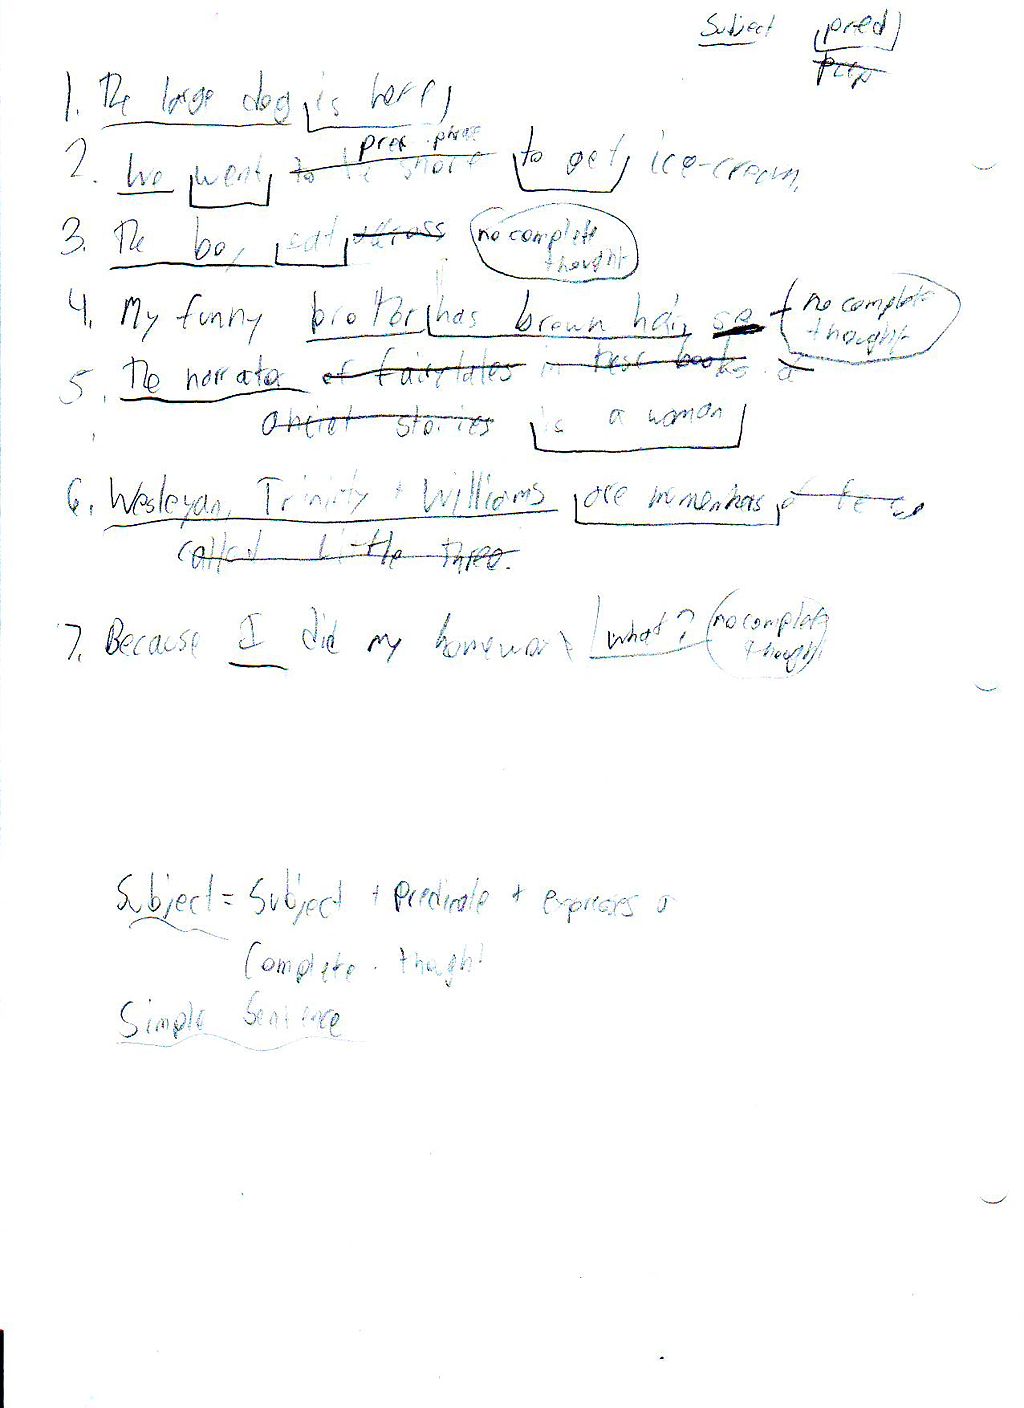 Subject pred
Prep
1. The large dog is harry
prep phrase
2. We went to the store to get ice-cream.
3. The boy eat across no complete thought
4. My funny brother has brown hair, so no complete thought
5. The narrator of fairytales in these books &
stories is a woman
6. Wesleyan, Trinity + Williams are memembers
called Little Three.
7. Because I did my homework what? no complete thought
Subject = Subject + Predicate + expresses a
Complete thought
Simple Sentence